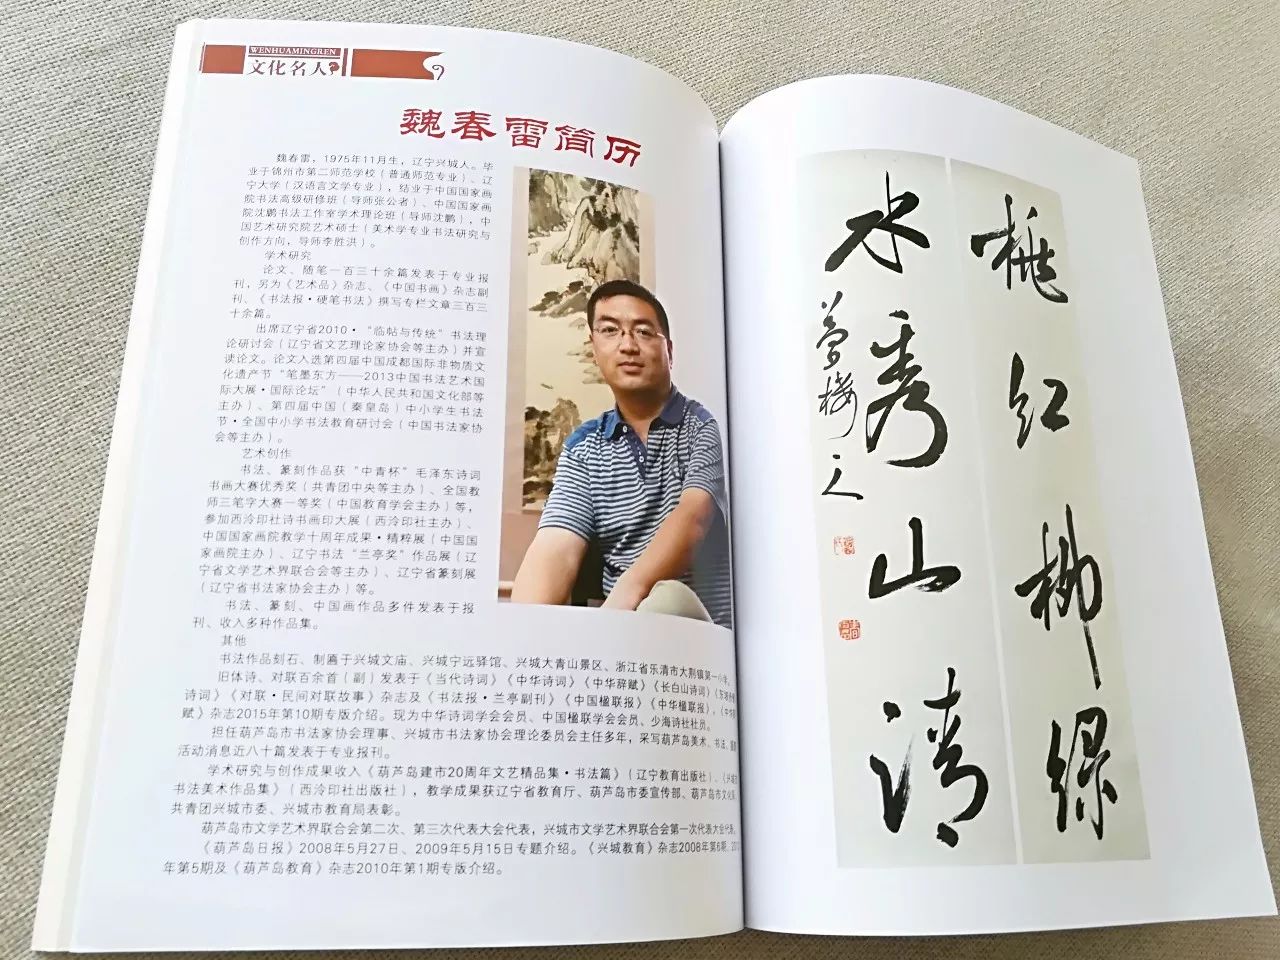 WENHUAMINGREN
文化名人
魏春雷简历
魏春雷，1975年11月生，辽宁兴城人。毕
业于锦州市第二师范学校（普通师范专业）、辽
宁大学（汉语言文学专业），结业于中国国家画
院书法高级研修班（导师张公者）、中国国家画
院沈鹏书法工作室学术理论班（导师沈鹏），中
国艺术研究院艺术硕士（美术学专业书法研究与
创作方向，导师李胜洪）。
学术研究
论文、随笔一百三十余篇发表于专业报
刊，另为《艺术品》杂志、《中国书画》杂志副
刊、《书法报·硬笔书法》撰写专栏文章三百三
十余篇。
出席辽宁省2010·“临帖与传统”书法理
论研讨会（辽宁省文艺理论家协会等主办）并宣
读论文。论文入选第四届中国成都国际非物质文
化遗产节“笔墨东方——2013中国书法艺术国
际大展·国际论坛”（中华人民共和国文化部等
主办）、第四届中国（秦皇岛）中小学生书法
节·全国中小学书法教育研讨会（中国书法家协
会等主办）。
艺术创作
书法、篆刻作品获“中青杯”毛泽东诗词
书画大赛优秀奖（共青团中央等主办）、全国教
师三笔字大赛一等奖（中国教育学会主办）等，
参加西泠印社诗书画印大展（西泠印社主办）、
中国国家画院教学十周年成果·精粹展（中国国
家画院主办）、辽宁书法“兰亭奖”作品展（辽
宁省文学艺术界联合会等主办）、辽宁省篆刻展
（辽宁省书法家协会主办）等。
书法、篆刻、中国画作品多件发表于报
刊、收入多种作品集。
其他
书法作品刻石、制匾于兴城文庙、兴城宁远驿馆、兴城大青山景区、浙江省乐清市大荆镇第一小学。
旧体诗、对联百余首（副）发表于《当代诗词》《中华诗词》《中华辞赋》《长白山诗词》
诗词》《对联·民间对联故事》杂志及《书法报·兰亭副刊》《中国楹联报》《中华楹联报》，《中华辞
赋》杂志2015年第10期专版介绍。现为中华诗词学会会员、中国楹联学会会员、少海诗社社员。
担任葫芦岛市书法家协会理事、兴城市书法家协会理论委员会主任多年，采写葫芦岛美术、书法、
活动消息近八十篇发表于专业报刊。
学术研究与创作成果收入《葫芦岛建市20周年文艺精品集·书法篇》（辽宁教育出版社）、《兴城
书法美术作品集》（西泠印社出版社），教学成果获辽宁省教育厅、葫芦岛市委宣传部、葫芦岛市文化局、
共青团兴城市委、兴城市教育局表彰。
葫芦岛市文学艺术界联合会第二次、第三次代表大会代表，兴城市文学艺术界联合会第一次代表大会代表。
《葫芦岛日报》2008年5月27日、2009年5月15日专题介绍。《兴城教育》杂志2008年第6期、
年第5期及《葫芦岛教育》杂志2010年第1期专版介绍。
桃红柳绿
水秀山清